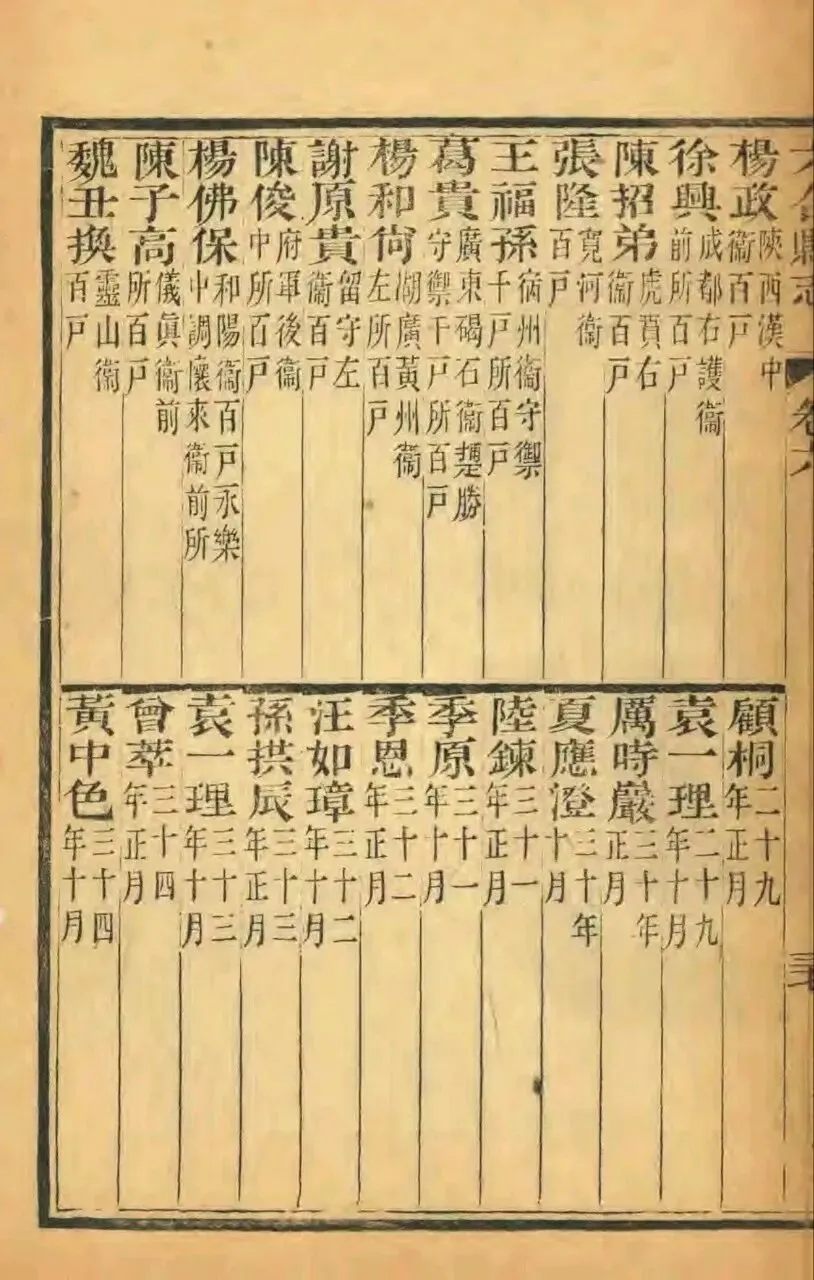 楊政陝西漢中衞百戸
徐興成都右護衞前所百戸
陳招弟虎賁右衞百戸
張隆寛河衞百戸
王福孫宿州衞守禦千戸所百戸
葛貴廣東碣石衞㨗勝守禦千戸所百戸
楊和尙湖廣黃州衞左所百戸
謝原貴留守左衞百戸
陳俊府軍後衞中所百戸
楊佛保和陽衞百戸永樂中調懷來衞前所
陳子高儀眞衞前所百戸
魏丑換靈山衞百戸
顧桐二十九年正月
袁一理二十九年十月
厲時嚴三十年正月
夏應澄三十年十月
陸鍊三十一年正月
季原三十一年十月
季恩三十二年正月
汪如璋三十二年十月
孫拱辰三十三年正月
袁一理三十三年十月
曾萃三十四年正月
黃中色三十四年十月